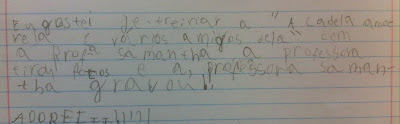 Eu gostei de treinar a "A Cadela ama
rela e vários amigos dela" com
a profª samantha a professora
tirou fotos e a, professora saman-
tha gravou!!
ADOREI